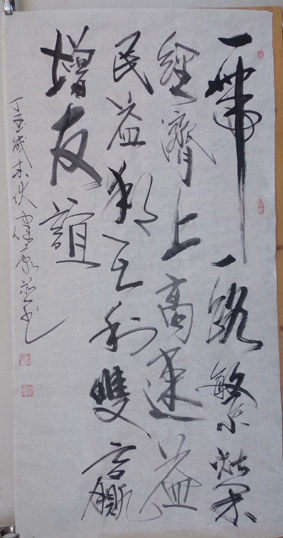 一帶一路繁榮
經濟上高速益
民益邦互利雙贏
增友誼
丁酉歲末伏